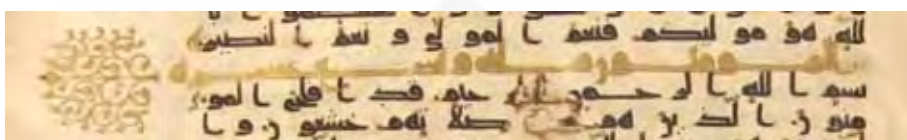 واعتصموا با
لله هو موليكم فنعم المولى و نعم النصير
بسم الله الرحمن الرحيم قد افلح المو
منون الذين هم في صلاتهم خشعون و ا